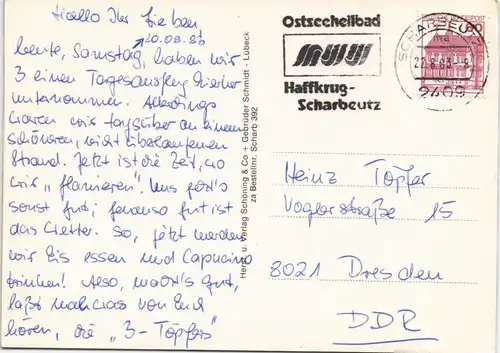 Hallo Ihr Lieben
20.08.83
heute, Samstag, haben wir
3 einen Tagesausflug hierher
unternommen. Allerdings
waren wir tagsüber an einem
schöneren, nicht überlaufenen
Strand. Jetzt ist die Zeit, wo
wir „flanieren". Uns geht's
sonst gut; genauso gut ist
das Wetter. So, jetzt werden
wir Eis essen und Capucino
trinken! Also, macht's gut,
laßt mal was von Euch
hören, die „3-Töpfers"
Herst. u. Verlag Schöning & Co + Gebrüder Schmidt - Lübeck
za Bestellnr. Scharb 392
Ostseeheilbad
Haffkrug-
Scharbeutz
SCHARBEUTZ
22.8.83
2409
Heinz Töpfer
Voglerstraße 15
8021 Dresden
DDR